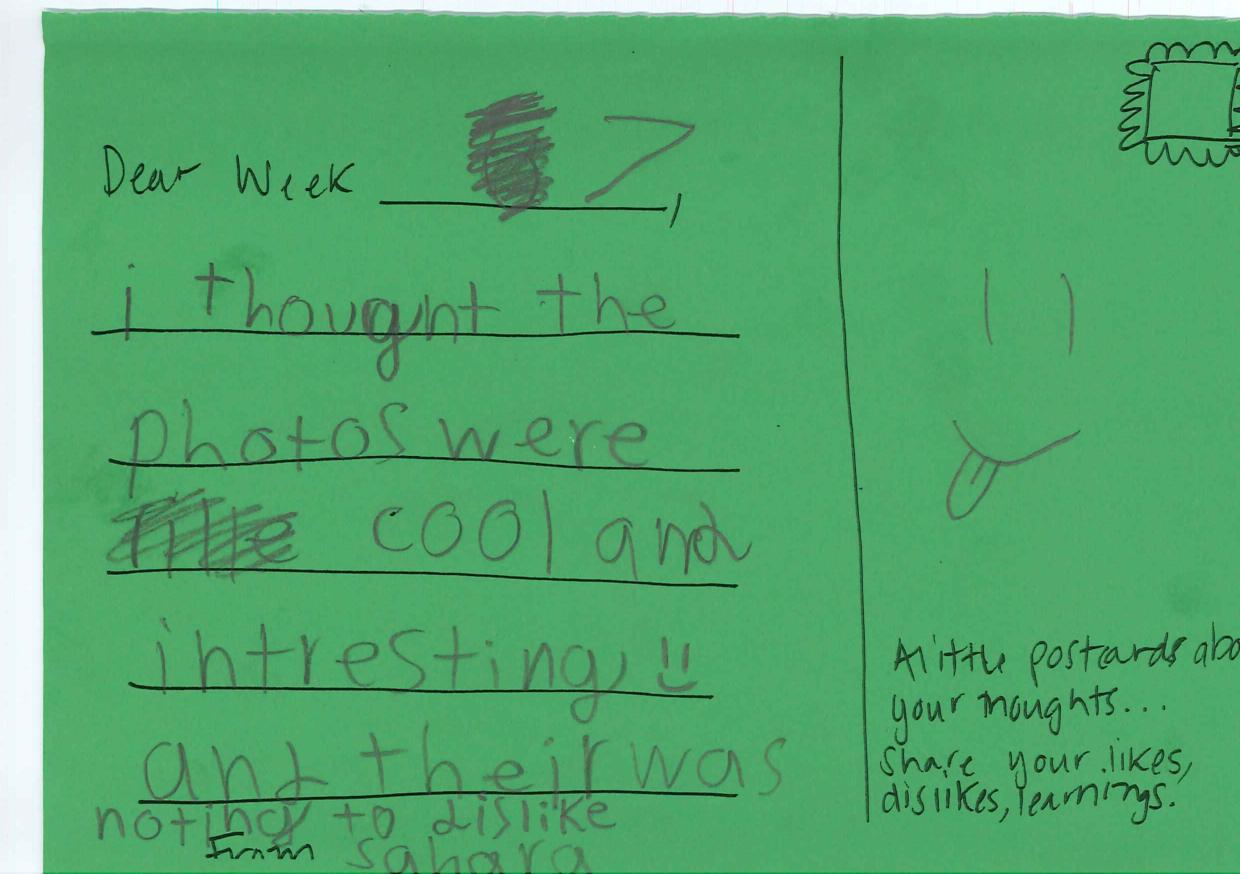 Dear Week 7,
i thought the
photos were
cool and
intresting, !!
and their was
noting to dislike
From sahara
A little postcards abo
your thoughts...
share your likes,
dislikes, learnings.